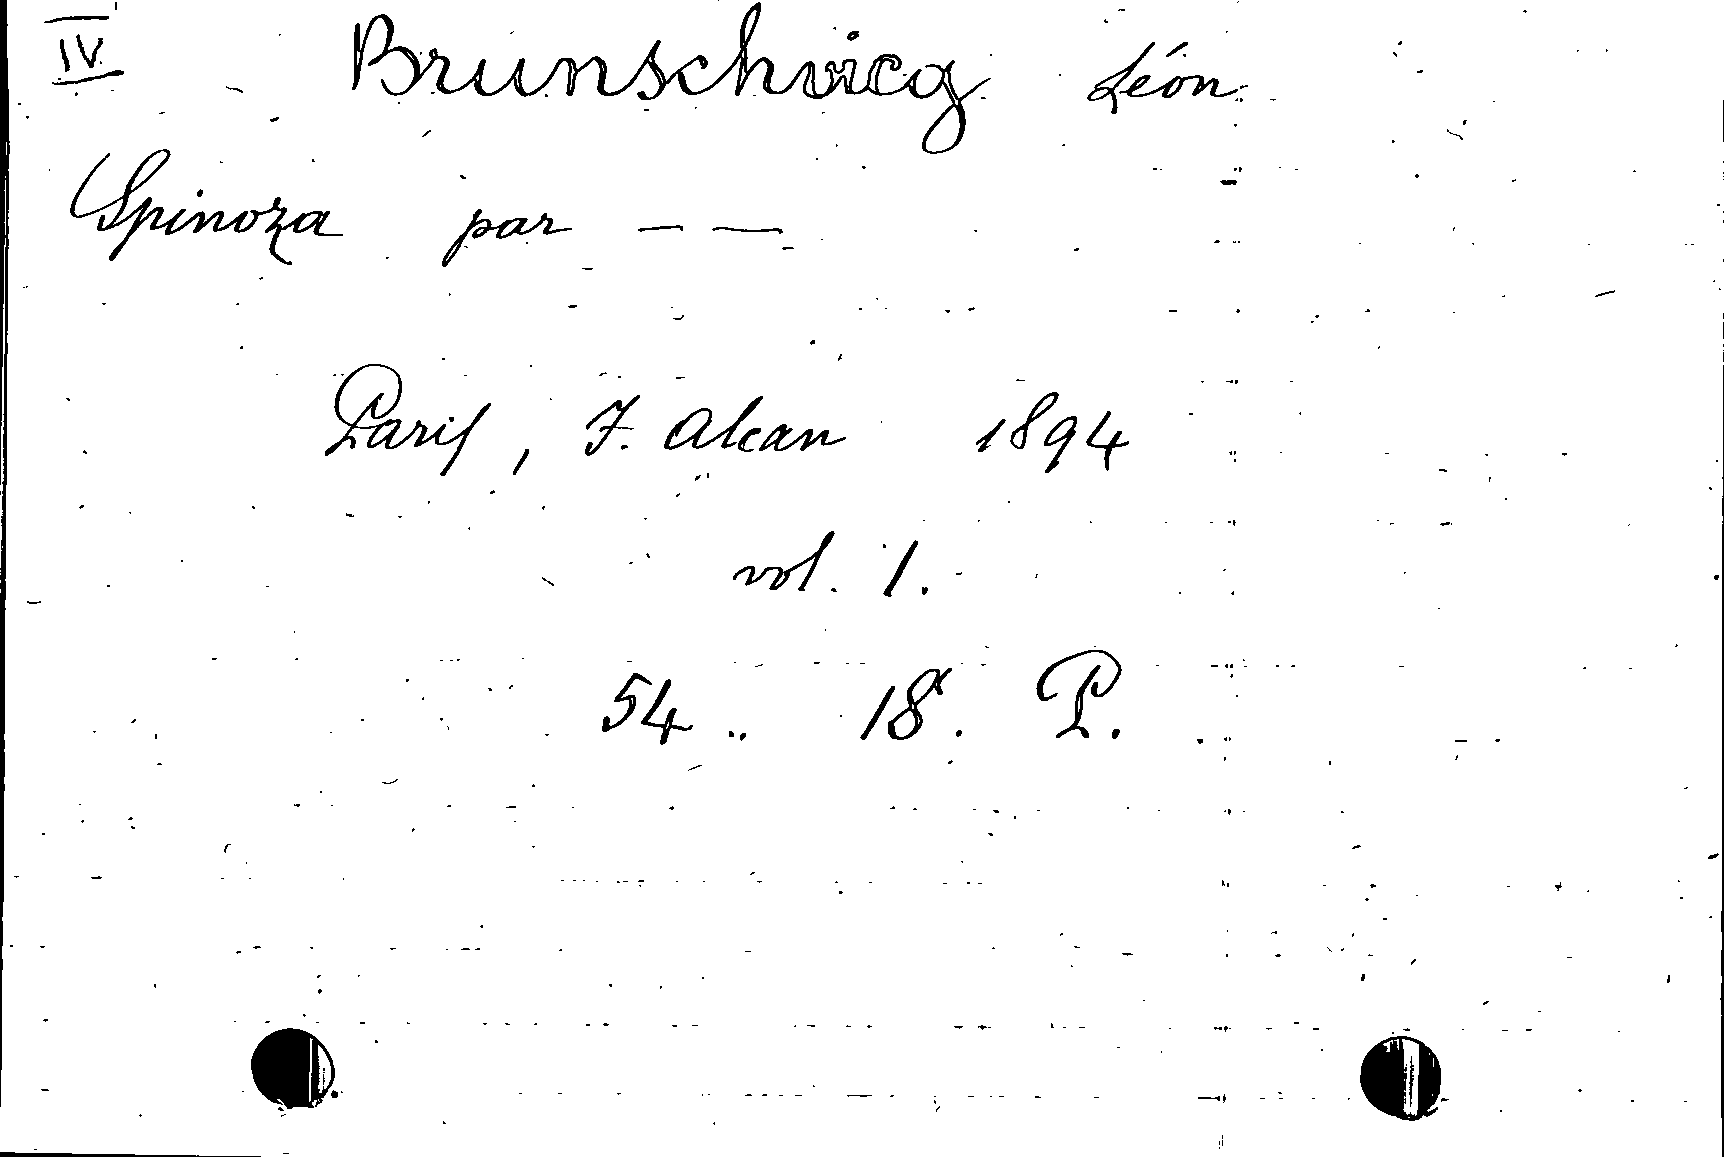 IV Brunschvicg Léon
Spinoza par — —
Paris, F. Alcan 1894
vol. 1.
54.. 18. P.